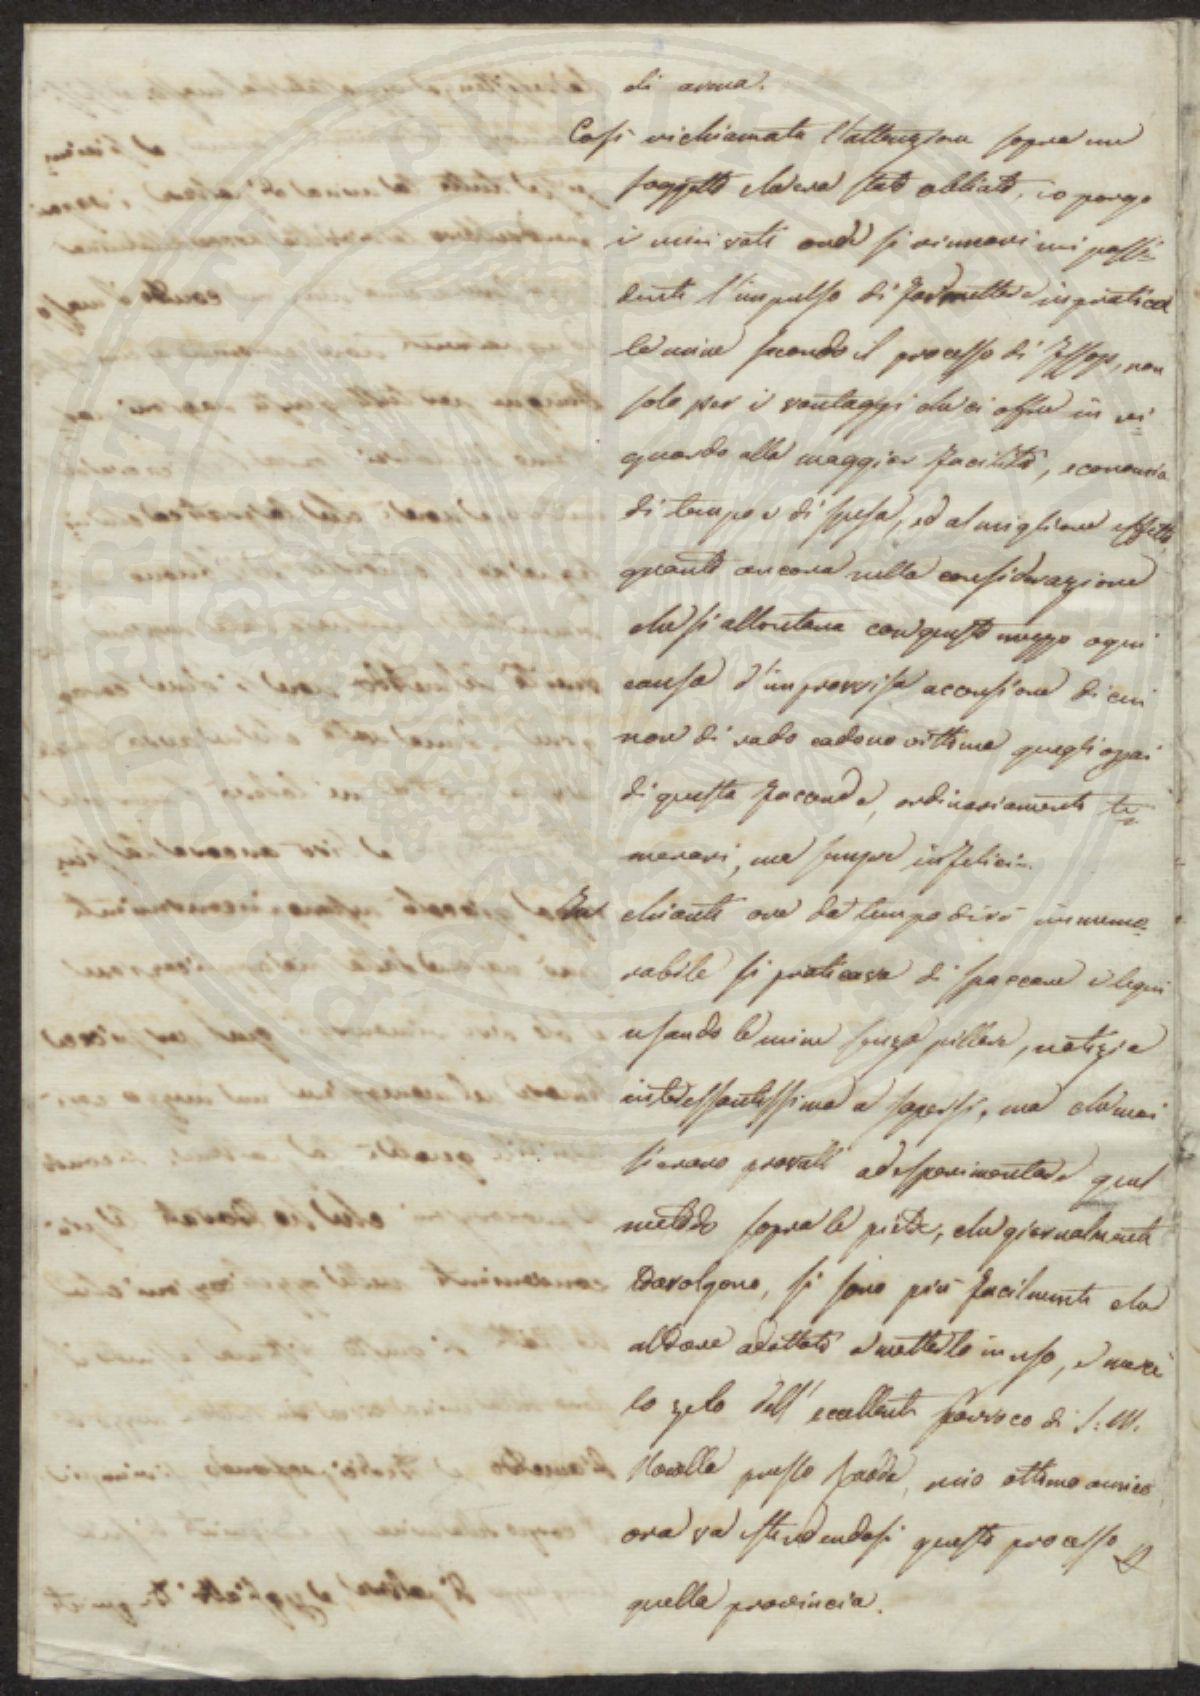 di arena.
Così richiamata l'attenzione sopra un
soggetto che era stato obliato, io porgo
i miei voti onde si rinnovi nei possi=
denti l'impulso di far mettere in pratica
le mine secondo il processo di Jessop, non
solo per i vantaggi che ci offre in ri=
guardo alla maggior facilità, economia
di tempo e di spesa, ed al migliore effetto,
quanto ancora nella considerazione
che si allontana con questo mezzo ogni
causa d'improvvisa accensione di cui
non di rado cadono vittime quegli operai
di questa faccenda, ordinariamente te=
merari, ma sempre infelici.
In Chianti ove da tempo dirò immemo=
rabile si praticava di spaccare i legni
usando le mine senza pillare, notizia
interessantissima a sapersi, ma che mai
si erano provati ad esperimentare quel
metodo sopra le pietre, che giornalmente
, si sono più facilmente che
altrove adattati a metterlo in uso, e mercè
lo zelo dell'eccellente Parroco di S: M.
Novella presso Radda, mio ottimo amico,
ora va estendendosi questo processo
quella provincia.